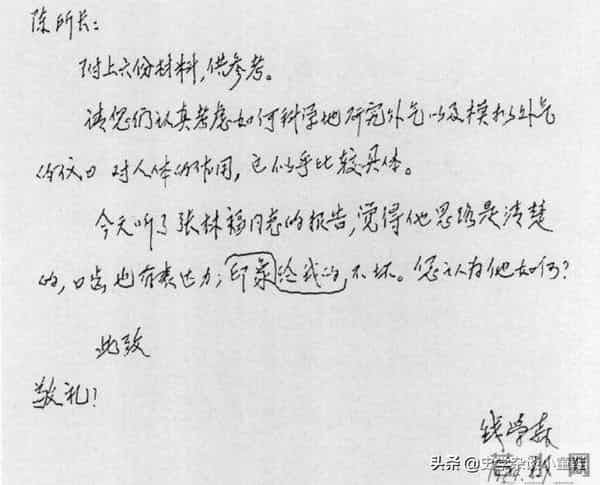 陈所长:
附上六份材料,供参考。
请您们认真考虑如何科学地研究外气以及模拟外气
的仪口对人体的作用,它似乎比较具体。
今天听了张林福同志的报告,觉得他思路是清楚
的,口齿也有表达力;印象给我的不坏。您认为他如何?
此致
敬礼!
钱学森
头条@史学杂谈小童